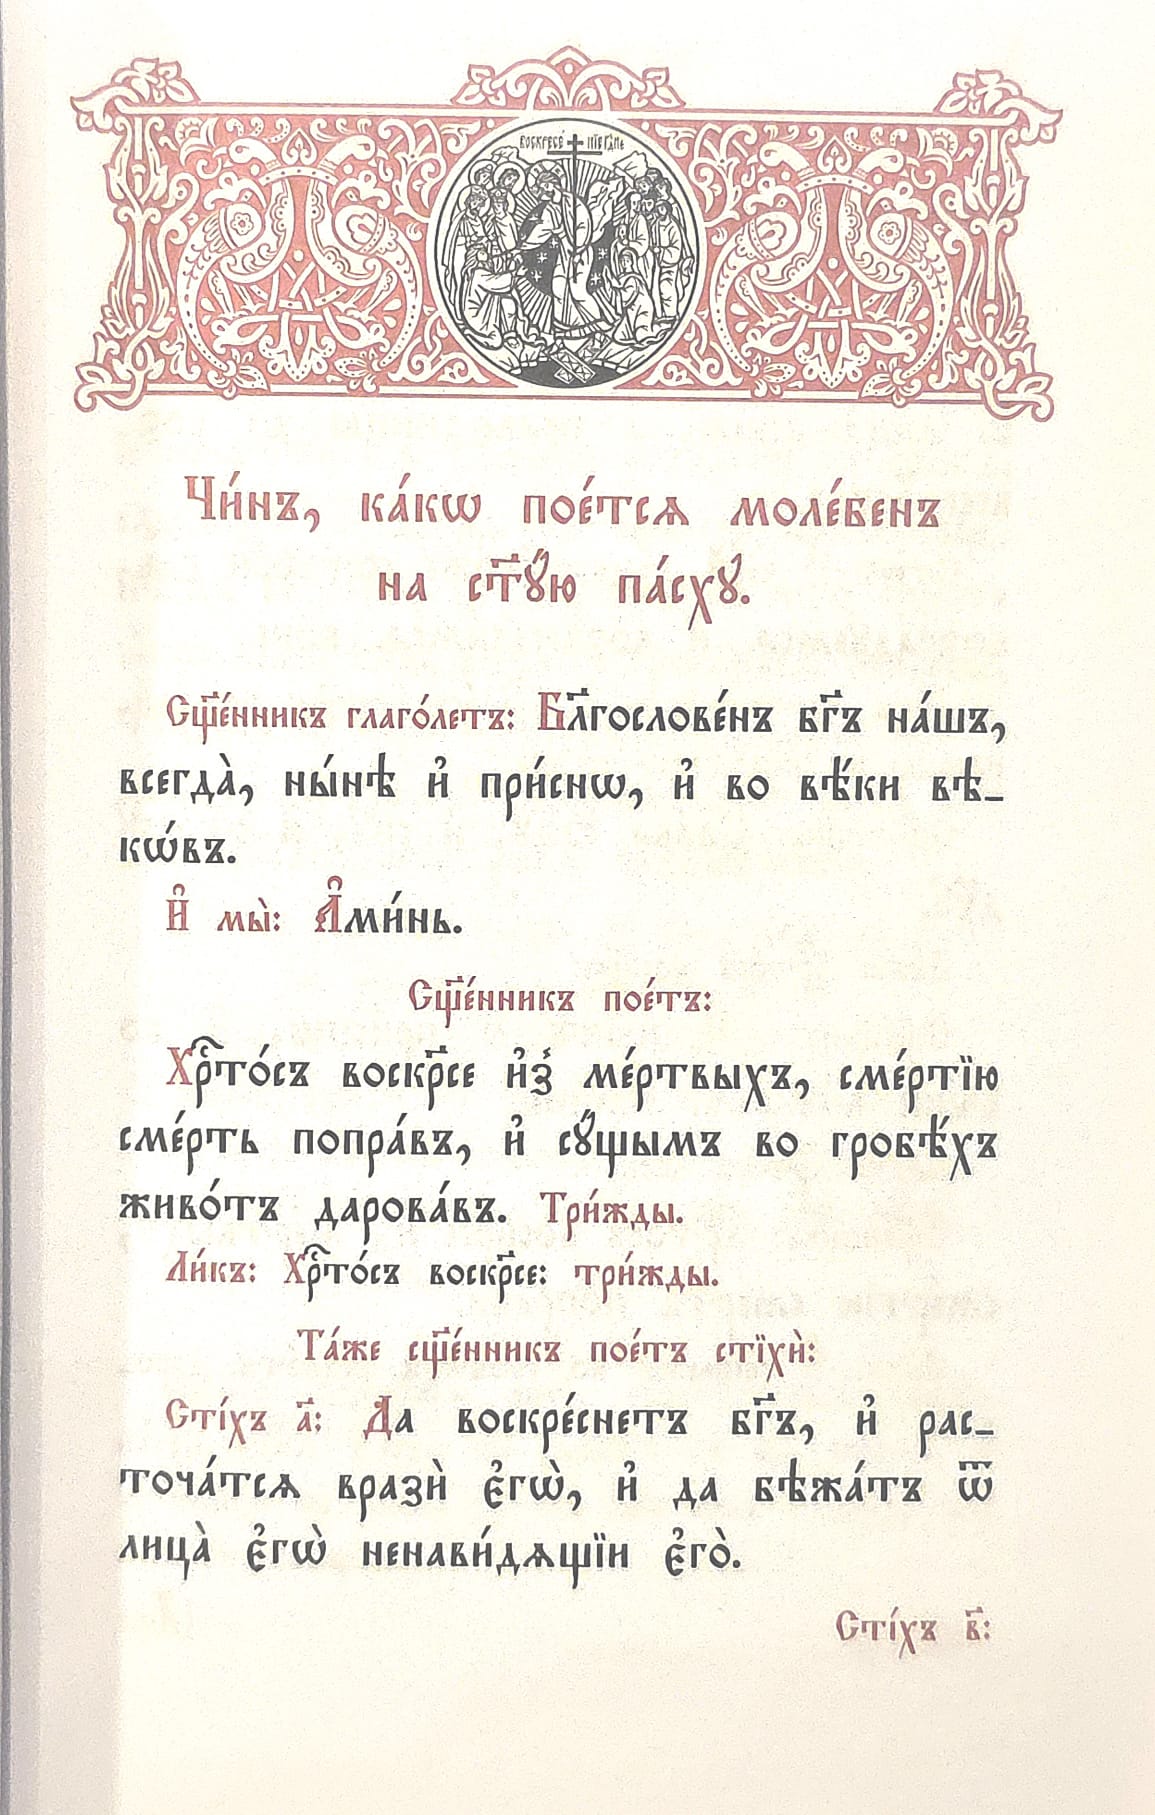 воскресе́нїе гдⷭ҇не
Чи́нъ, ка́кѡ пое́тсѧ моле́бенъ
на ст҃ꙋ́ю па́схꙋ.
Сщ҃е́нникъ глаго́летъ: Бл҃гослове́нъ бг҃ъ на́шъ,
всегда̀, ны́нѣ и҆ при́снѡ, и҆ во вѣ́ки вѣ-
кѡ́въ.
И҆̑ мы̀: А҆̑ми́нь.
Сщ҃е́нникъ пое́тъ:
Хрⷭ҇то́съ воскр҃се и҆з̾ ме́ртвыхъ, сме́ртїю
сме́рть попра́въ, и҆ сꙋ́щымъ во гробѣ́хъ
живо́тъ дарова́въ. Три́жды.
Ли́къ: Хрⷭ҇то́съ воскр҃се: три́жды.
Та́же сщ҃е́нникъ пое́тъ стїхѝ:
Сті́хъ а҃: Да воскре́снетъ бг҃ъ, и҆ рас-
точа́тсѧ вразѝ є҆гѡ̀, и҆ да бѣжа́тъ ѿ
лица̀ є҆гѡ̀ ненави́дѧщїи є҆го̀.
Сті́хъ в҃: